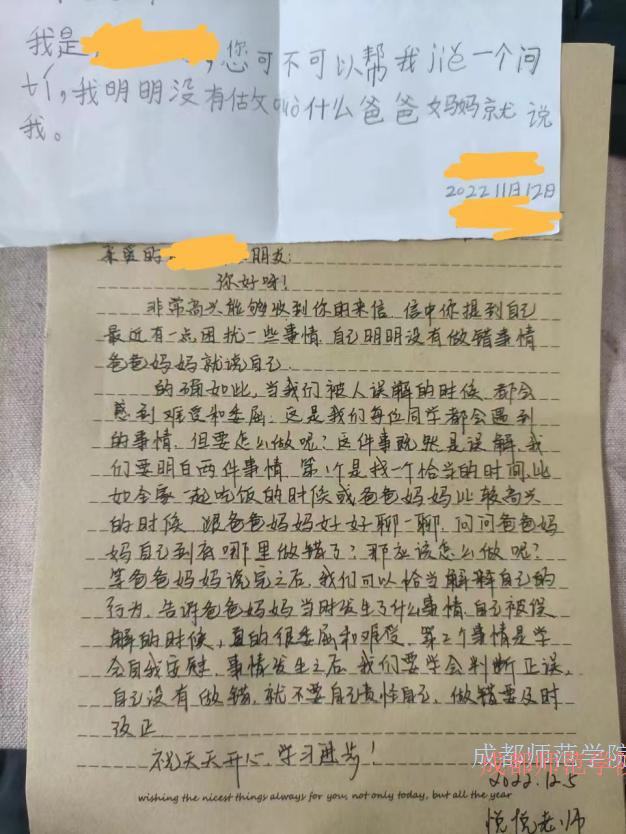 我是
,您可不可以帮我jiě一个问
tí,我明明没有估文cuò什么爸爸妈妈就说
我。
2022 11月12日
亲爱的 朋友:
你好呀!
非常高兴能够收到你的来信.信中你提到自己
最近有一点困扰一些事情.自己明明没有做错事情
爸爸妈妈就说自己.
的确如此,当我们被人误解的时候.都会
感到难受和委屈.这是我们每位同学都会遇到
的事情.但要怎么做呢?这件事既然是误解.我
们要明白两件事情.第1个是找一个恰当的时间,比
如全家一起吃饭的时候或爸爸妈妈比较高兴
的时候.跟爸爸妈妈好好聊一聊.问问爸爸妈
妈自己到底哪里做错了?那应该怎么做呢?
等爸爸妈妈说完之后.我们可以恰当解释自己的
行为.告诉爸爸妈妈当时发生了什么事情.自己被误
解的时候,真的很委屈和难受.第2个事情是学
会自我安慰.事情发生之后.我们要学会判断正误,
自己没有做错.就不要自己责怪自己.做错要及时
改正.
祝天天开心.学习进步!
成都师范学院
成都师范学
2022.12.5
wishing the nicest things always for you, not only today, but all the year
悦悦老师